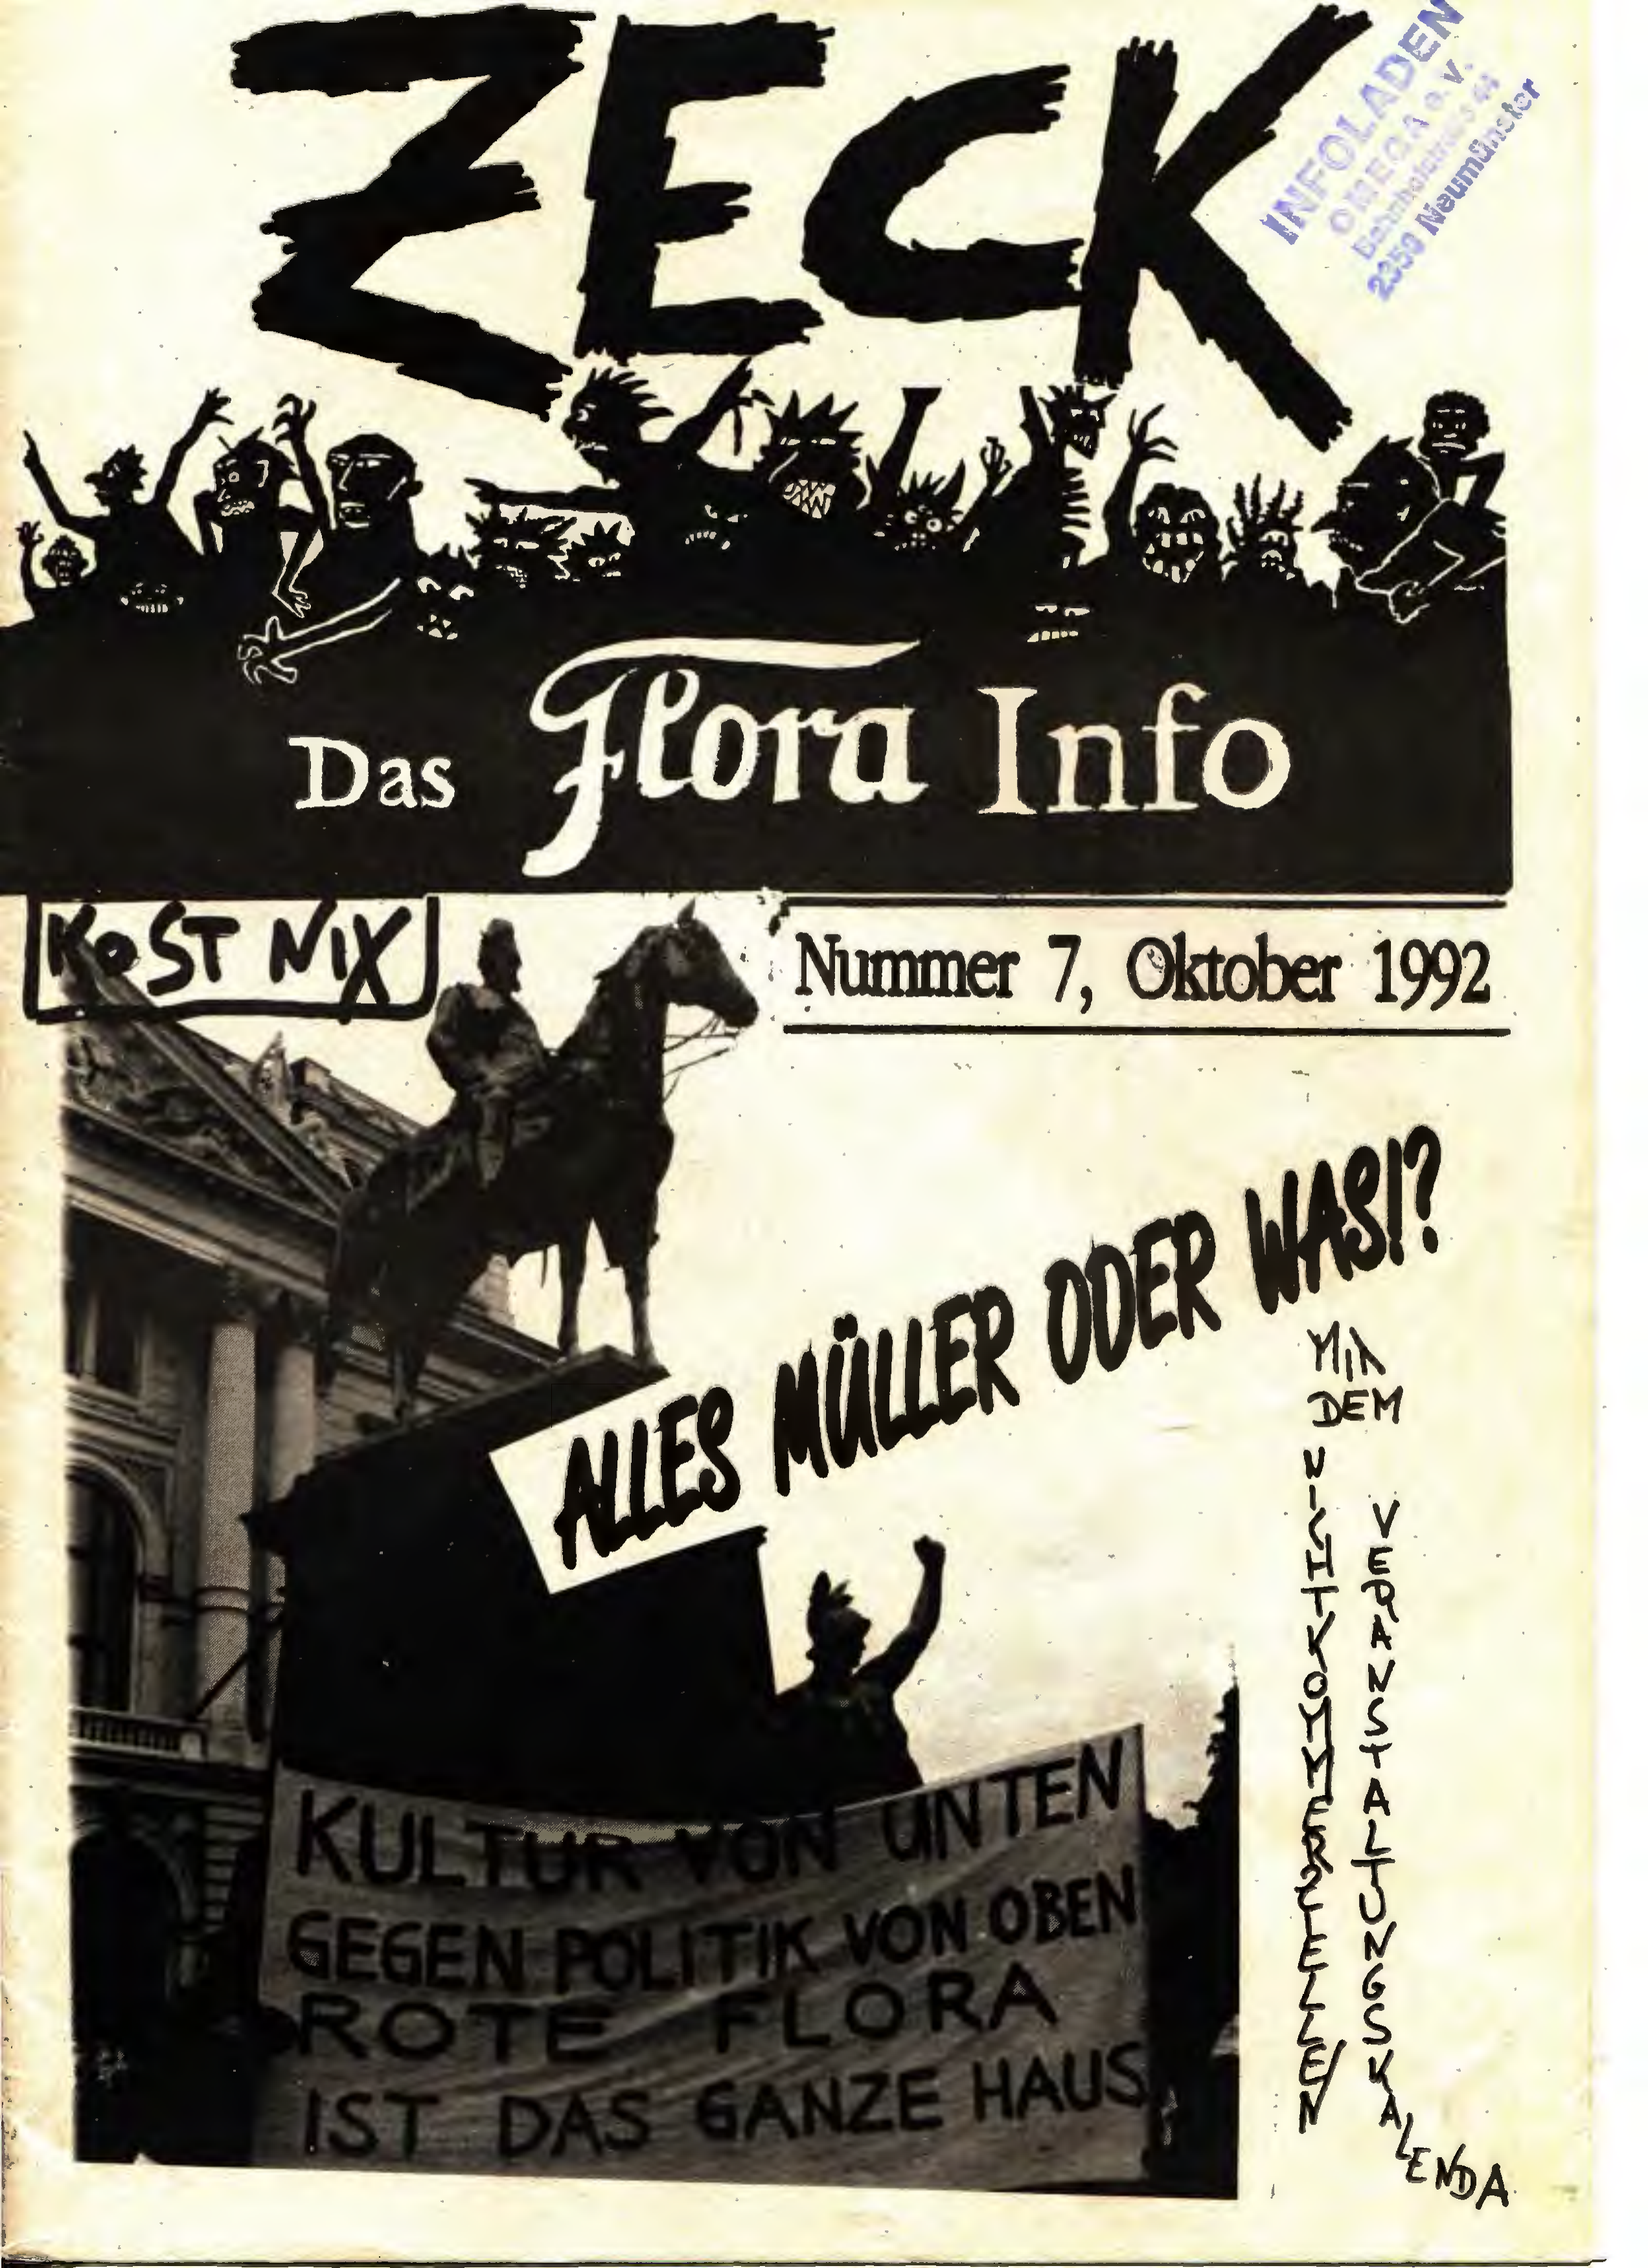 ZECK
INFOLADEN
OMEGA e.V.
2350 Neumünster
Das Flora Info
KOST NIX
Nummer 7, Oktober 1992
ALLES MÜLLER ODER WAS!?
MIT
DEM
NICHTKOMMERZIELLEN
VERANSTALTUNGSKALENDA
KULTUR VON UNTEN
GEGEN POLITIK VON OBEN
ROTE FLORA
IST DAS GANZE HAUS